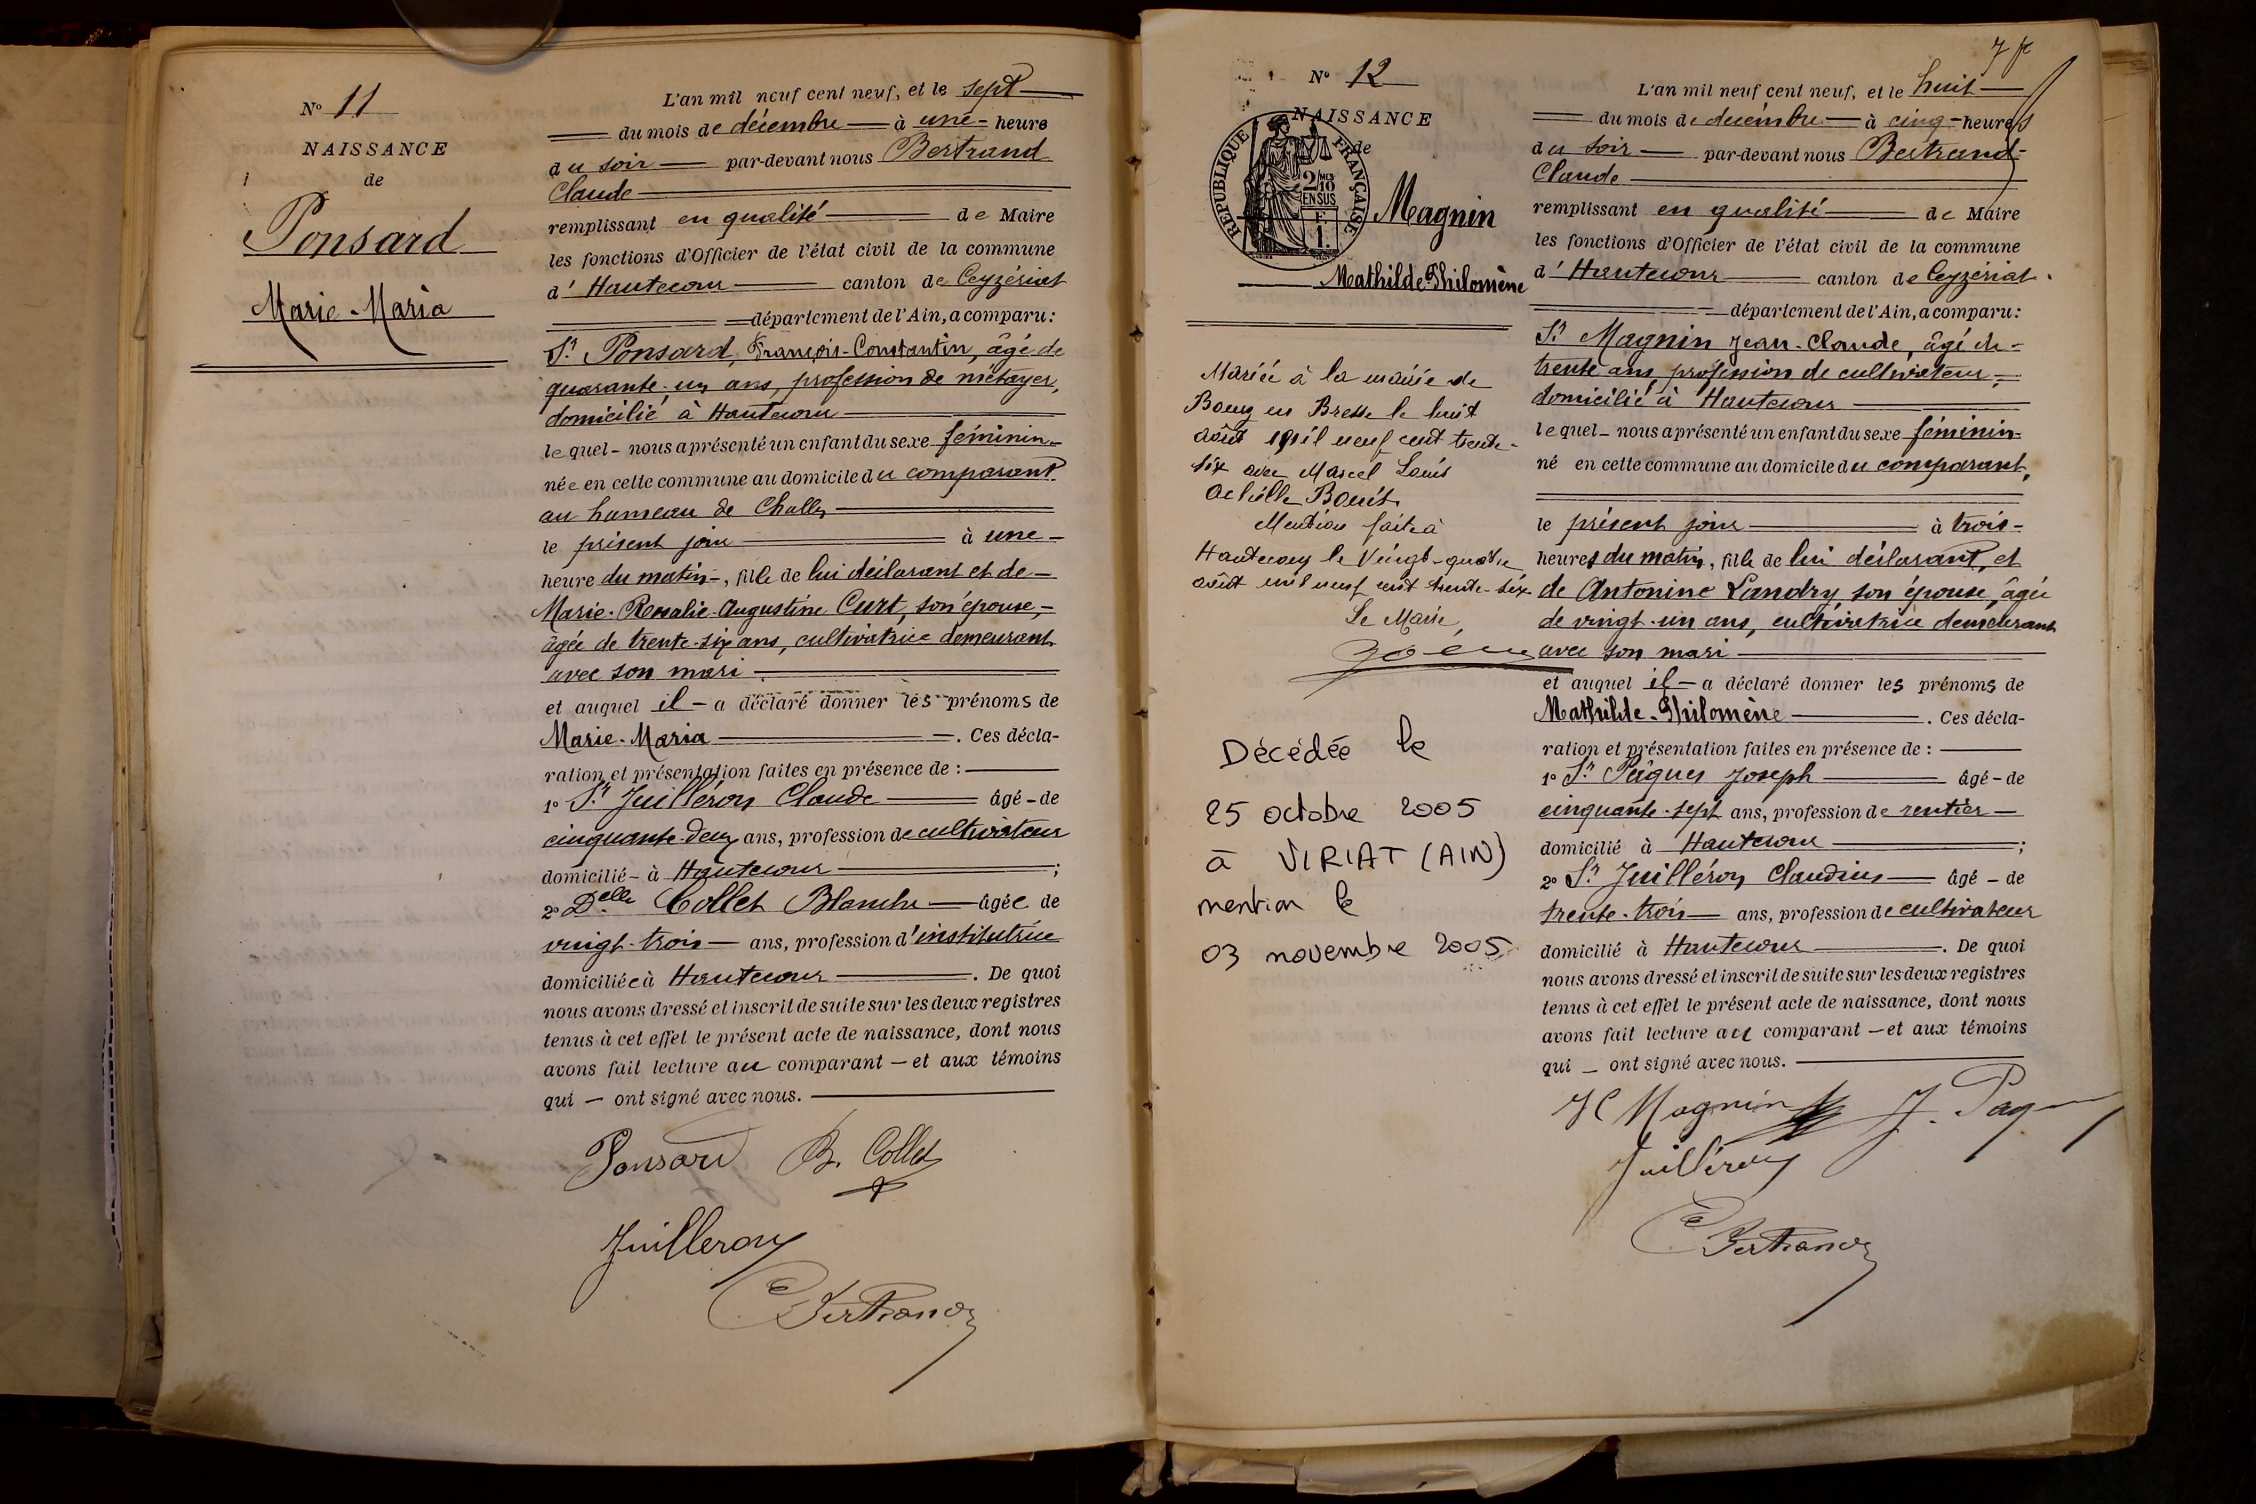 N° 11
NAISSANCE
de
Ponsard
Marie-Maria
L'an mil neuf cent neuf, et le sept
du mois de décembre à une heure
du soir par-devant nous Bertrand
Claude
remplissant en qualité de Maire
les fonctions d'Officier de l'état civil de la commune
d'Hautecour canton de Ceyzériat
département de l'Ain, a comparu:
Sr Ponsard, François-Constantin, âgé de
quarante-un ans, profession de métayer,
domicilié à Hautecour
lequel nous a présenté un enfant du sexe féminin
née en cette commune au domicile du comparant
au hameau de Challes
le présent jour à une
heure du matin, fille de lui déclarant et de
Marie-Rosalie-Augustine Curt, son épouse,
âgée de trente-six ans, cultivatrice demeurant
avec son mari
et auquel il a déclaré donner les prénoms de
Marie-Maria. Ces décla-
ration et présentation faites en présence de :
1° Sr Juilléron Claude âgé de
cinquante-deux ans, profession de cultivateur
domicilié à Hautecour ;
2° Delle Collet Blanche âgée de
vingt-trois ans, profession d'institutrice
domiciliée à Hautecour. De quoi
nous avons dressé et inscrit de suite sur les deux registres
tenus à cet effet le présent acte de naissance, dont nous
avons fait lecture au comparant et aux témoins
qui ont signé avec nous.
Ponsard B. Collet
Juilleron
C Bertrand
7
N° 12
NAISSANCE
de
REPUBLIQUE FRANÇAISE
2 MES
10
EN SUS
F.
1.
Magnin
Mathilde-Philomène
Mariée à la mairie de
Bourg en Bresse le huit
août mil neuf cent trente-
six avec Marcel Louis
Achille Bouis
Mention faite à
Hautecour le Vingt-quatre
août mil neuf cent trente-six
Le Maire,
Décédée le
25 octobre 2005
à VIRIAT (AIN)
mention le
03 novembre 2005
L'an mil neuf cent neuf, et le huit
du mois de décembre à cinq heures
du soir par-devant nous Bertrand
Claude
remplissant en qualité de Maire
les fonctions d'Officier de l'état civil de la commune
d'Hautecour canton de Ceyzériat.
département de l'Ain, a comparu:
Sr Magnin Jean-Claude, âgé de
trente ans, profession de cultivateur,
domicilié à Hautecour
lequel nous a présenté un enfant du sexe féminin
né en cette commune au domicile du comparant,
le présent jour à trois
heures du matin, fille de lui déclarant, et
de Antonine Landry son épouse, âgée
de vingt-un ans, cultivatrice demeurant
avec son mari
et auquel il a déclaré donner les prénoms de
Mathilde-Philomène. Ces décla-
ration et présentation faites en présence de :
1° Sr Pâques Joseph âgé de
cinquante-sept ans, profession de rentier
domicilié à Hautecour ;
2° Sr Juilléron Claudius âgé de
trente-trois ans, profession de cultivateur
domicilié à Hautecour. De quoi
nous avons dressé et inscrit de suite sur les deux registres
tenus à cet effet le présent acte de naissance, dont nous
avons fait lecture au comparant et aux témoins
qui ont signé avec nous.
JC Magnin J. Paq
Juilléron
C Bertrand